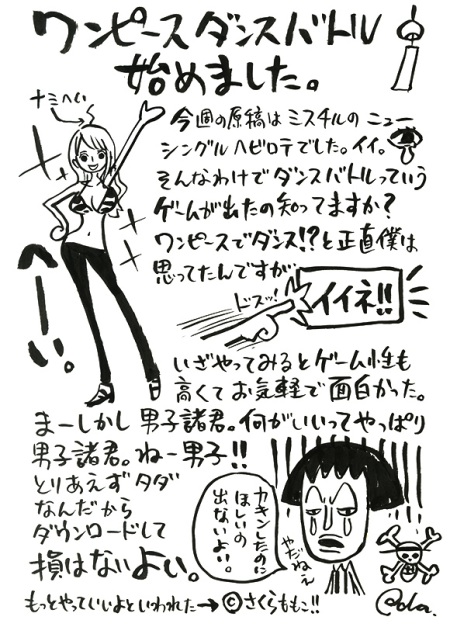 ワンピースダンスバトル
始めました。
ナミへい
今週の原稿はミスチルのニュー
シングルヘビロテでした。イイ。
そんなわけでダンスバトルっていう
ゲームが出たの知ってますか?
ワンピースでダンス!?と正直僕は
思ってたんですが
ドスッ!
イイネ!!
へーーい。
いざやってみるとゲーム性も
高くてお気軽で面白かった。
まーしかし男子諸君。何がいいってやっぱり
男子諸君。ねー男子!!
とりあえずタダ
なんだから
ダウンロードして
損はないよい。
カキンしたのに
ほしいの
出ないよい。
やだねぇ
もっとやっていいよといわれた→©さくらももこ!!